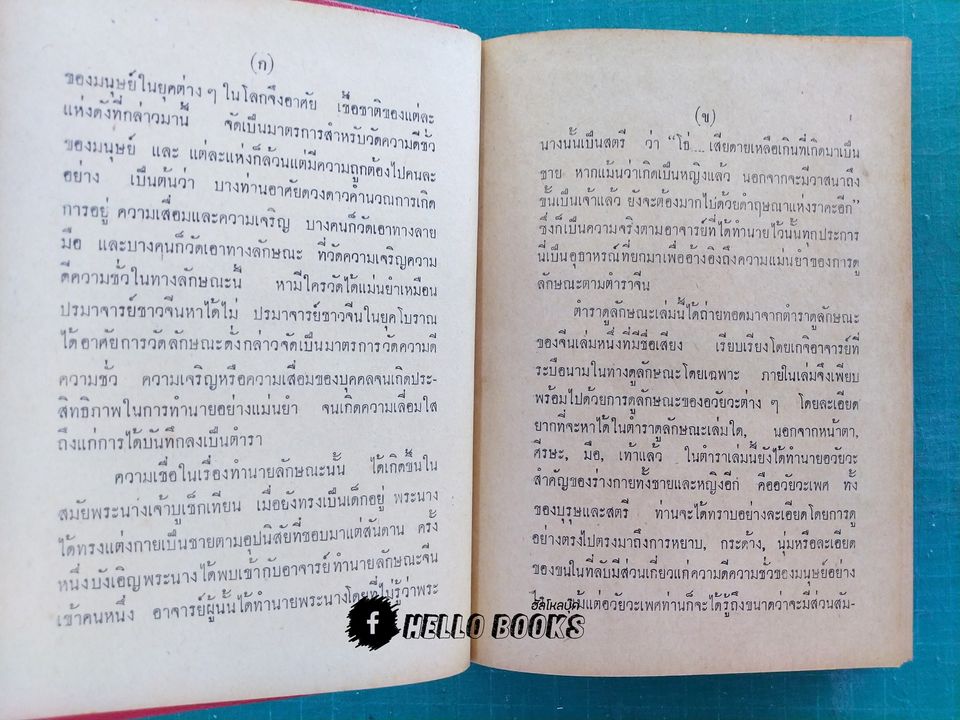 (ก)
ของมนุษย์ในยุคต่าง ๆ ในโลกจึงอาศัย เชื้อชาติของแต่ละ
แห่งดังที่กล่าวมานี้ จัดเป็นมาตรการสำหรับวัดความดีชั่ว
ของมนุษย์ และ แต่ละแห่งก็ล้วนแต่มีความถูกต้องไปคนละ
อย่าง เป็นต้นว่า บางท่านอาศัยดวงดาวคำนวณการเกิด
การอยู่ ความเสื่อมและความเจริญ บางคนก็วัดเอาทางลาย
มือ และบางๆคนก็วัดเอาทางลักษณะ ที่วัดความเจริญความ
ดีความชั่วในทางลักษณะนี้ หามีใครวัดได้แม่นยำเหมือน
ปรมาจารย์ชาวจีนหาได้ไม่ ปรมาจารย์ชาวจีนในยุคโบราณ
ได้อาศัยการวัดลักษณะดั่งกล่าวจัดเป็นมาตรการวัดความดี
ความชั่ว ความเจริญหรือความเสื่อมของบุคคลจนเกิดประ-
สิทธิภาพในการทำนายอย่างแม่นยำ จนเกิดความเลื่อมใส
ถึงแก่การได้บันทึกลงเป็นตำรา
ความเชื่อในเรื่องทำนายลักษณะนั้น ได้เกิดขึ้นใน
สมัยพระนางเจ้าบูเช็กเทียน เมื่อยังทรงเป็นเด็กอยู่ พระนาง
ได้ทรงแต่งกายเป็นชายตามอุปนิสัยที่ชอบมาแต่สันดาน ครั้ง
หนึ่งบังเอิญพระนางได้พบเข้ากับอาจารย์ทำนายลักษณะจีน
เข้าคนหนึ่ง อาจารย์ผู้นั้นได้ทำนายพระนางโดยที่ไม่รู้ว่าพระ
(ข)
นางนั้นเป็นสตรี ว่า "โข่ ... เสียดายเหลือเกินที่เกิดมาเป็น
ชาย หากแม้นว่าเกิดเป็นหญิงแล้ว นอกจากจะมีวาสนาถึง
ขั้นเป็นเจ้าแล้ว ยังจะต้องมากไปด้วยดำฤษณาแห่งราคะอีก"
ซึ่งก็เป็นความจริงตามอาจารย์ที่ได้ทำนายไว้นั้นทุกประการ
นี่เป็นอุธาหรณ์ที่ยกมาเพื่ออ้างอิงถึงความแม่นยำของการดู
ลักษณะตามตำราจีน
ตำราดูลักษณะเล่มนี้ได้ถ่ายทอดมาจากตำราดูลักษณะ
ของจีนเล่มหนึ่งที่มีชื่อเสียง เรียบเรียงโดยเกจิอาจารย์ที่
ระบือนามในทางดูลักษณะโดยเฉพาะ ภายในเล่มจึงเพียบ
พร้อมไปด้วยการดูลักษณะของอวัยวะต่าง ๆ โดยละเอียด
ยากที่จะหาได้ในตำราดูลักษณะเล่มใด, นอกจากหน้าตา,
ศีรษะ, มือ, เท้าแล้ว ในตำราเล่มนี้ยังได้ทำนายอวัยวะ
สำคัญของร่างกายทั้งชายและหญิงอีก คืออวัยวะเพศ ทั้ง
ของบุรุษและสตรี ท่านจะได้ทราบอย่างละเอียดโดยการดู
อย่างตรงไปตรงมาถึงการหยาบ, กระด้าง, นุ่มหรือละเอียด
ของขนในที่ลับมีส่วนเกี่ยวแก่ความดีความชั่วของมนุษย์อย่าง
แต่อวัยวะเพศท่านก็จะได้รู้ถึงขนาดว่าจะมีส่วนสัม-
ฮัลโหลบุ๊ค
f HELLO BOOKS